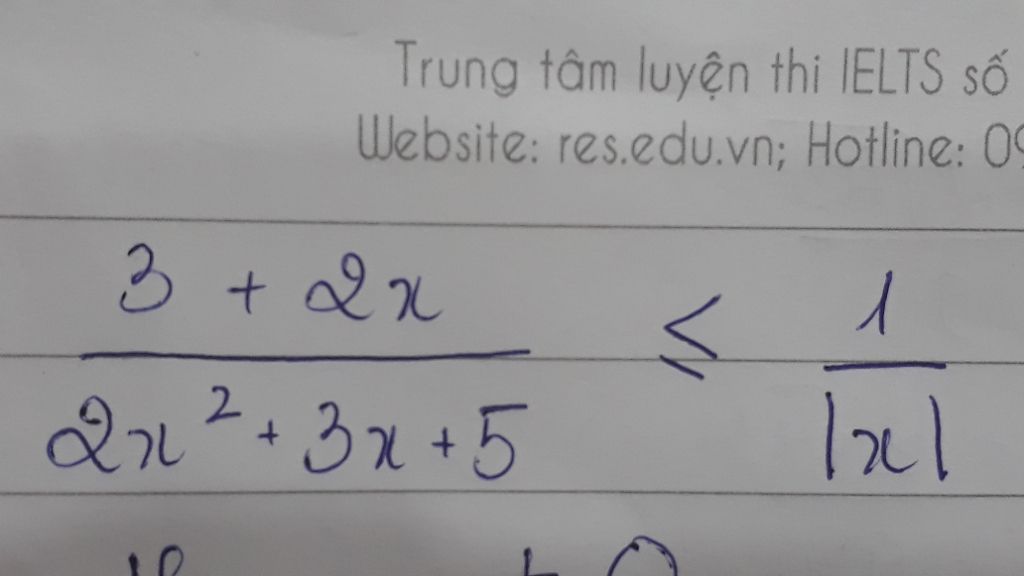 Trung tâm luyện thi IELTS số
Website: res.edu.vn; Hotline: 09
3 + 2x / 2x² + 3x + 5 ≤ 1 / |x|